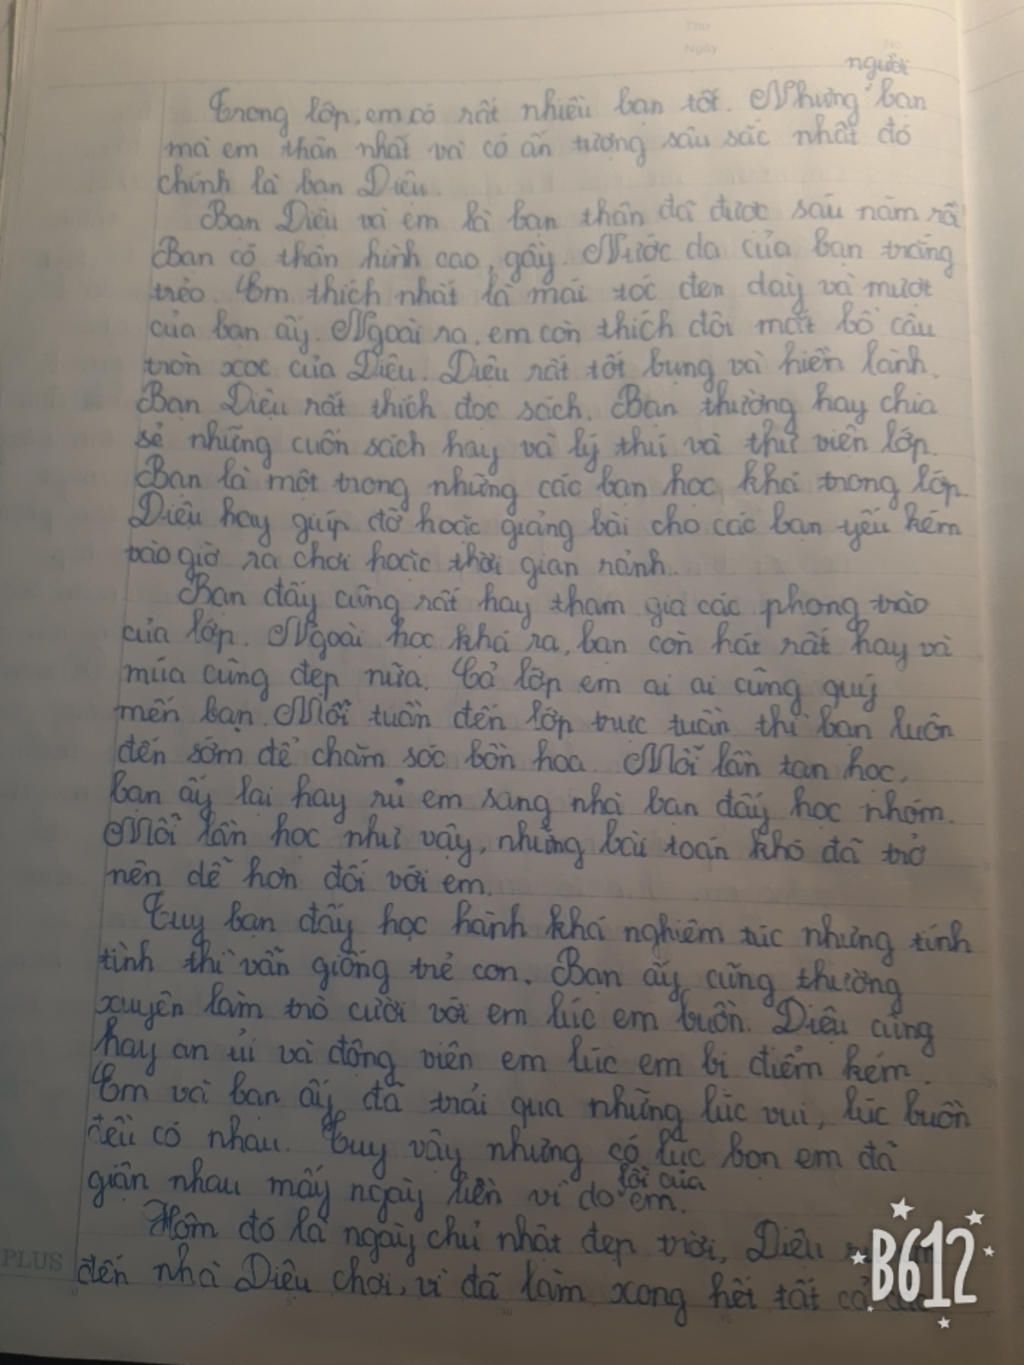 Thứ
Ngày
No
người
Trong lớp, em có rất nhiều bạn tốt. Nhưng bạn
mà em thân nhất và có ấn tượng sâu sắc nhất đó
chính là bạn Diệu.
Bạn Diệu và em là bạn thân đã được sáu năm rồi
Bạn có thân hình cao, gầy. Nước da của bạn trắng
trẻo. Em thích nhất là mái tóc đen dày và mượt
của bạn ấy. Ngoài ra, em còn thích đôi mắt bồ câu
tròn xoe của Diệu. Diệu rất tốt bụng và hiền lành.
Bạn Diệu rất thích đọc sách. Bạn thường hay chia
sẻ những cuốn sách hay và lý thú và thư viện lớp.
Bạn là một trong những các bạn học khá trong lớp.
Diệu hay giúp đỡ hoặc giảng bài cho các bạn yếu kém
vào giờ ra chơi hoặc thời gian rảnh.
Bạn đấy cũng rất hay tham gia các phong trào
của lớp. Ngoài học khá ra, bạn còn hát rất hay và
múa cũng đẹp nữa. Cả lớp em ai ai cũng quý
mến bạn. Mỗi tuần đến lớp trực tuần thì bạn luôn
đến sớm để chăm sóc bồn hoa. Mỗi lần tan học,
bạn ấy lại hay rủ em sang nhà bạn đấy học nhóm.
Mỗi lần học như vậy, những bài toán khó đã trở
nên dễ hơn đối với em.
Tuy bạn đấy học hành khá nghiêm túc nhưng tính
tình thì vẫn giống trẻ con. Bạn ấy cũng thường
xuyên làm trò cười với em lúc em buồn. Diệu cũng
hay an ủi và động viên em lúc em bị điểm kém.
Em và bạn ấy đã trải qua những lúc vui, lúc buồn
đều có nhau. Tuy vậy nhưng có lúc bọn em đã
giận nhau mấy ngày liền vì do em.
lỗi của
Hôm đó là ngày chủ nhật đẹp trời, Diệu
đến nhà Diệu chơi, vì đã làm xong hết tất cả
PLUS
B612